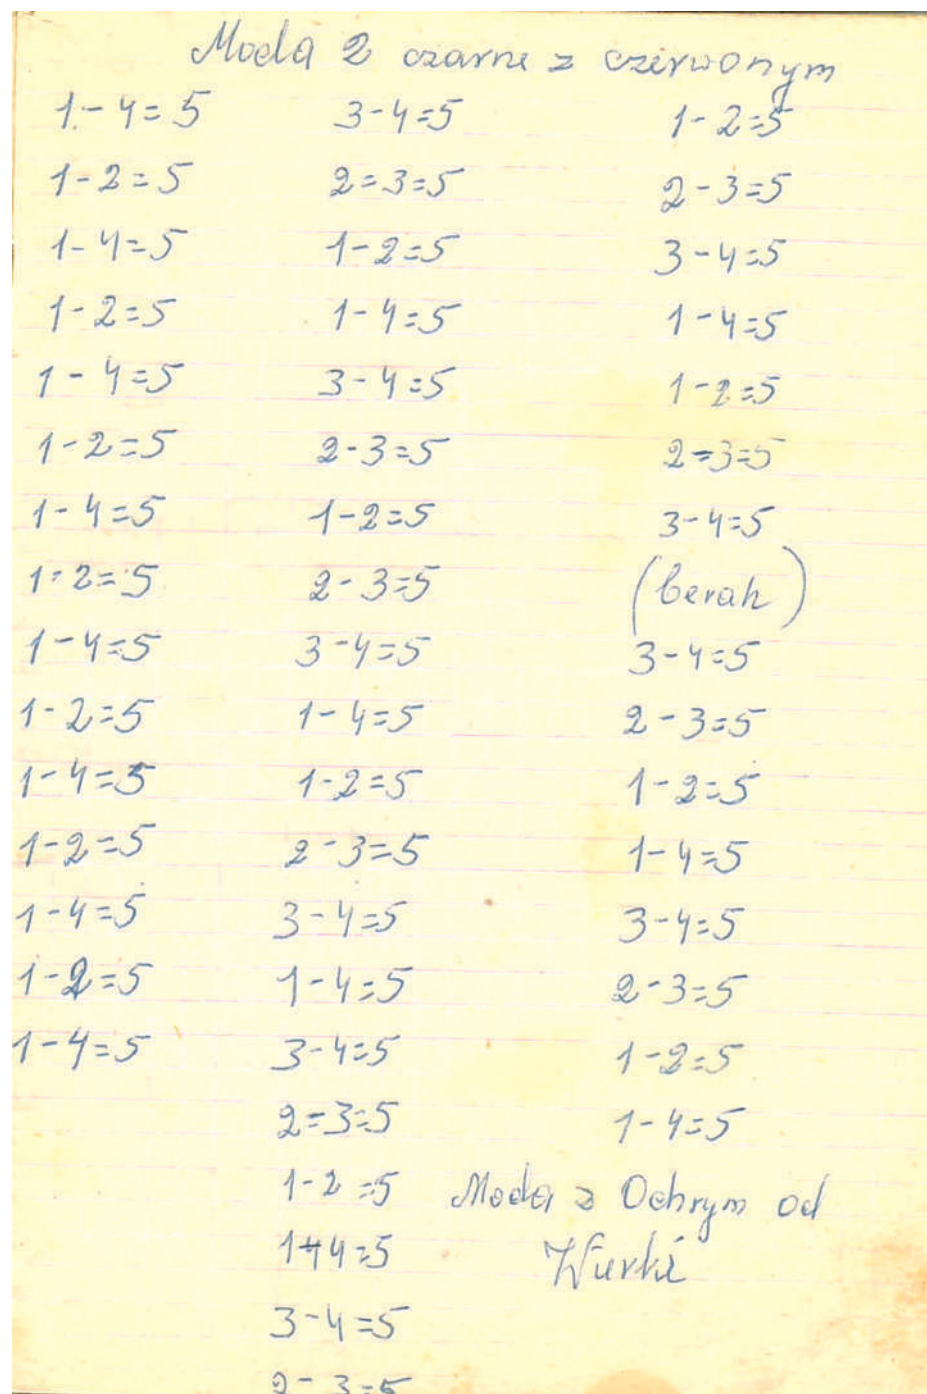 Moda 2 czarne z czerwonym
1-4=5
1-2=5
1-4=5
1-2=5
1-4=5
1-2=5
1-4=5
1-2=5
1-4=5
1-2=5
1-4=5
1-2=5
1-4=5
1-2=5
1-4=5
3-4=5
2=3=5
1-2=5
1-4=5
3-4=5
2-3=5
1-2=5
2-3=5
3-4=5
1-4=5
1-2=5
2-3=5
3-4=5
1-4=5
3-4=5
2=3=5
1-2=5
1-4=5
3-4=5
2-3=5
1-2=5
2-3=5
3-4=5
1-4=5
1-2=5
2=3=5
3-4=5
(berah)
3-4=5
2-3=5
1-2=5
1-4=5
3-4=5
2-3=5
1-2=5
1-4=5
Moda z Ochrym od